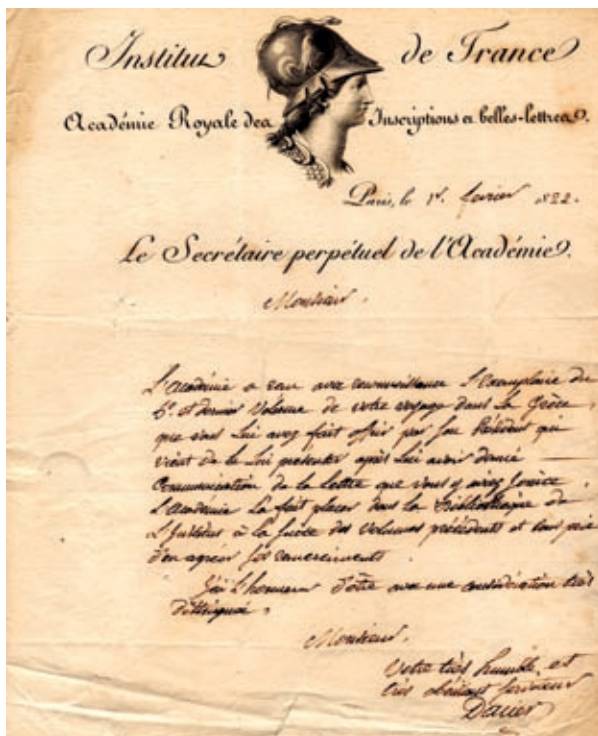 Institut de France
Académie Royale des Inscriptions et belles-lettres.
Paris, le 1er. février 1822.
Le Secrétaire perpétuel de l'Académie.
Monsieur.
L'académie a reçu avec reconnaissance l'exemplaire du
et dernier volume de votre voyage dans la Grèce,
que vous lui avez fait offrir par son Président qui
vient de le lui présenter après lui avoir donné
Communication de la lettre que vous y aviez jointe.
L'académie l'a fait placer dans la Bibliothèque de
L'Institut à la suite des volumes précédents et vous prie
d'en agréer ses remerciements.
J'ai l'honneur d'être avec une considération très
distinguée,
Monsieur.
Votre très humble et
très obéissant serviteur
Dacier